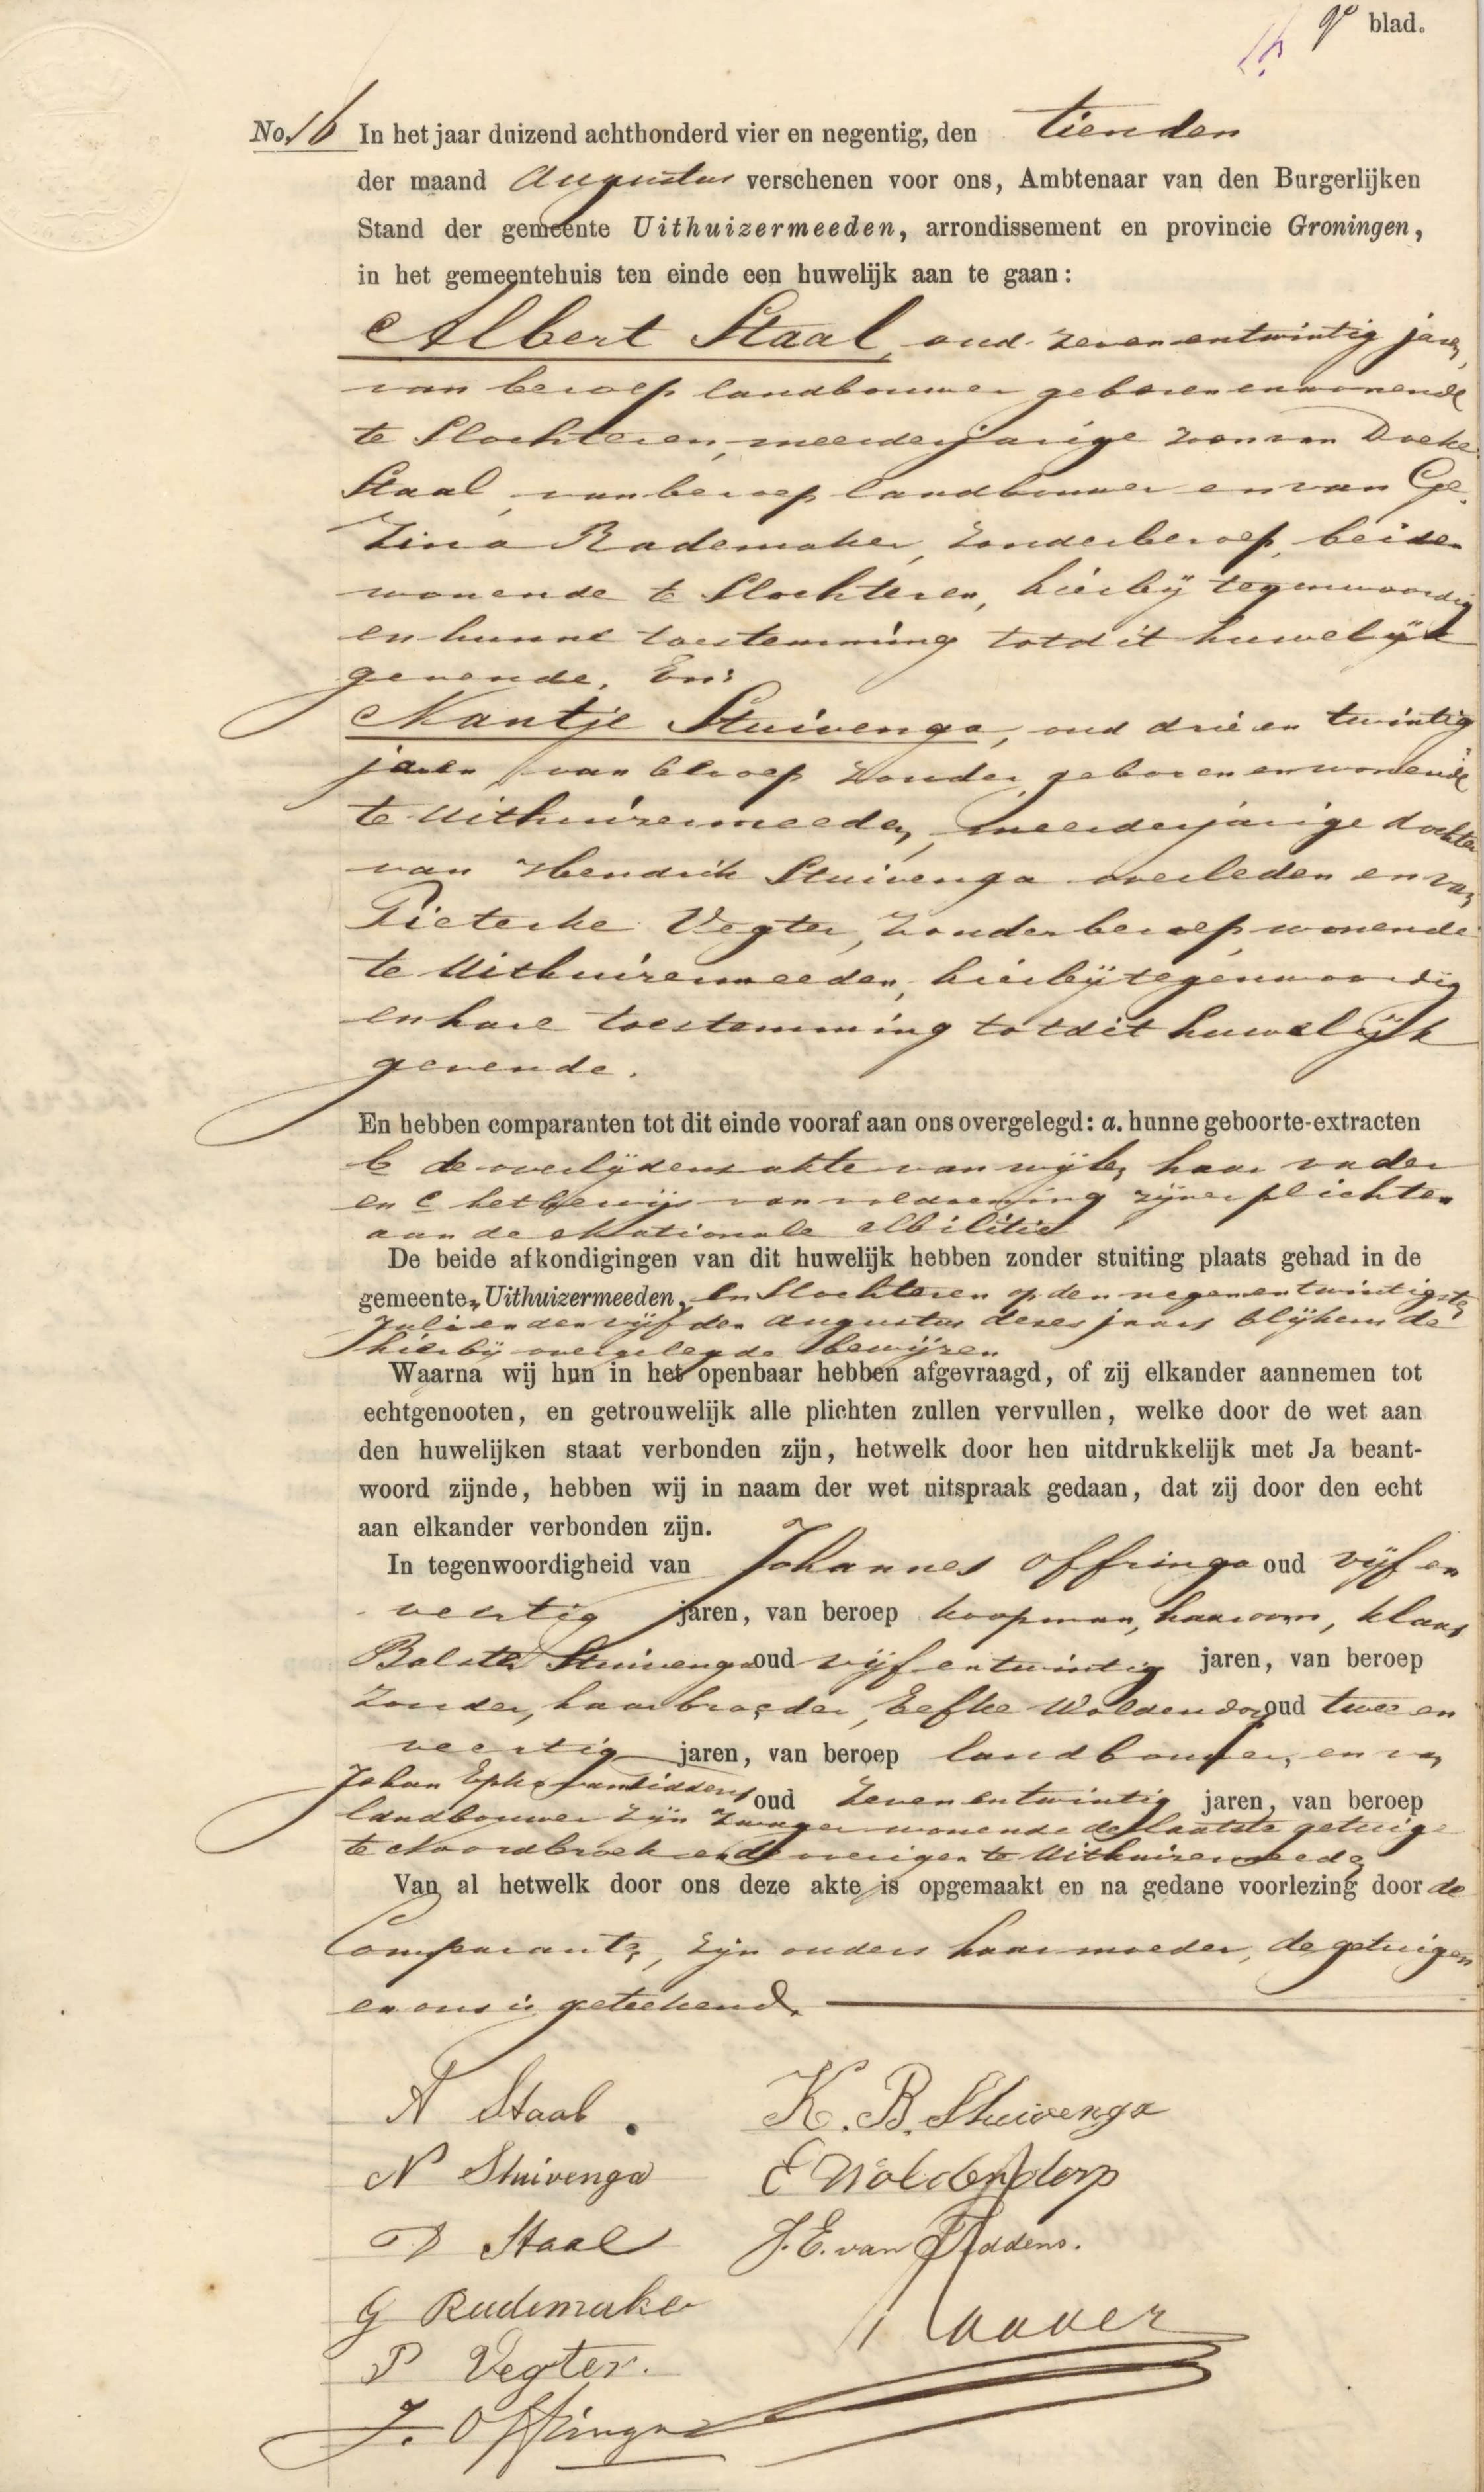 9e blad.
No. 16 In het jaar duizend achthonderd vier en negentig, den tienden
der maand Augustus verschenen voor ons, Ambtenaar van den Burgerlijken
Stand der gemeente Uithuizermeeden, arrondissement en provincie Groningen,
in het gemeentehuis ten einde een huwelijk aan te gaan:
Albert Staal, oud zeven en twintig jaren,
van beroep landbouwer geboren en wonende
te Slochteren, meerderjarige zoon van Doeke
Staal, van beroep landbouwer en van Ge-
zina Rademaker, zonder beroep, beiden
wonende te Slochteren, hierbij tegenwoordig
en hunne toestemming tot dit huwelijk
gevende. En:
Nantje Stuivenga, oud drie en twintig
jaren van beroep zonder, geboren en wonende
te Uithuizermeeden, meerderjarige dochter
van Hendrik Stuivenga overleden en van
Pieterke Vegter, zonder beroep, wonende
te Uithuizermeeden, hierbij tegenwoordig
en hare toestemming tot dit huwelijk
gevende.
En hebben comparanten tot dit einde vooraf aan ons overgelegd: a. hunne geboorte-extracten
b de overlijdensakte van wijlen haar vader
en c het bewijs van voldoening zijner plichten
aan de Nationale Militie
De beide afkondigingen van dit huwelijk hebben zonder stuiting plaats gehad in de
gemeenten Uithuizermeeden, en Slochteren op den negenentwintigsten
Juli en den vijfden Augustus dezes jaars blijkens de
hierbij overgelegde bewijzen
Waarna wij hun in het openbaar hebben afgevraagd, of zij elkander aannemen tot
echtgenooten, en getrouwelijk alle plichten zullen vervullen, welke door de wet aan
den huwelijken staat verbonden zijn, hetwelk door hen uitdrukkelijk met Ja beant-
woord zijnde, hebben wij in naam der wet uitspraak gedaan, dat zij door den echt
aan elkander verbonden zijn.
In tegenwoordigheid van Johannes Offringa oud vijf en
veertig jaren, van beroep koopman, haar oom, Klaas
Balster Stuivenga oud vijf en twintig jaren, van beroep
zonder, haar broeder, Eefke Woldendorp oud twee en
veertig jaren, van beroep landbouwer, en van
Johan Epko van Tiddens oud zeven en twintig jaren, van beroep
landbouwer zijn zwager wonende de laatste getuige
te Noordbroek en de overigen te Uithuizermeeden
Van al hetwelk door ons deze akte is opgemaakt en na gedane voorlezing door de
Comparanten, zijn ouders haar moeder, de getuigen
en ons is geteekend.
A Staal. K. B. Stuivenga
N Stuivenga E Woldendorp
D Staal J. E. van Tiddens.
G Rademaker
P Vegter.
J. Offringa